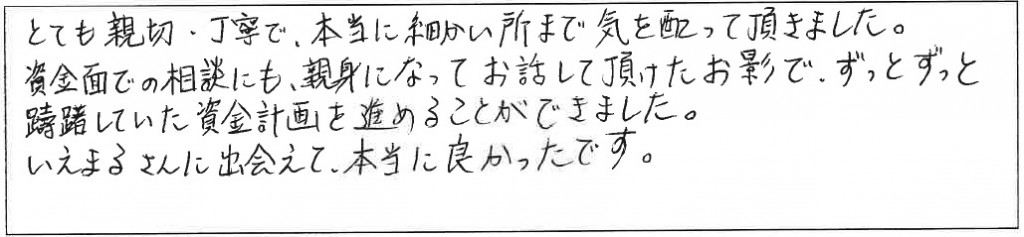 とても親切・丁寧で、本当に細かい所まで気を配って頂きました。
資金面での相談にも、親身になってお話して頂けたお影で、ずっとずっと
躊躇していた資金計画を進めることができました。
いえまるさんに出会えて、本当に良かったです。